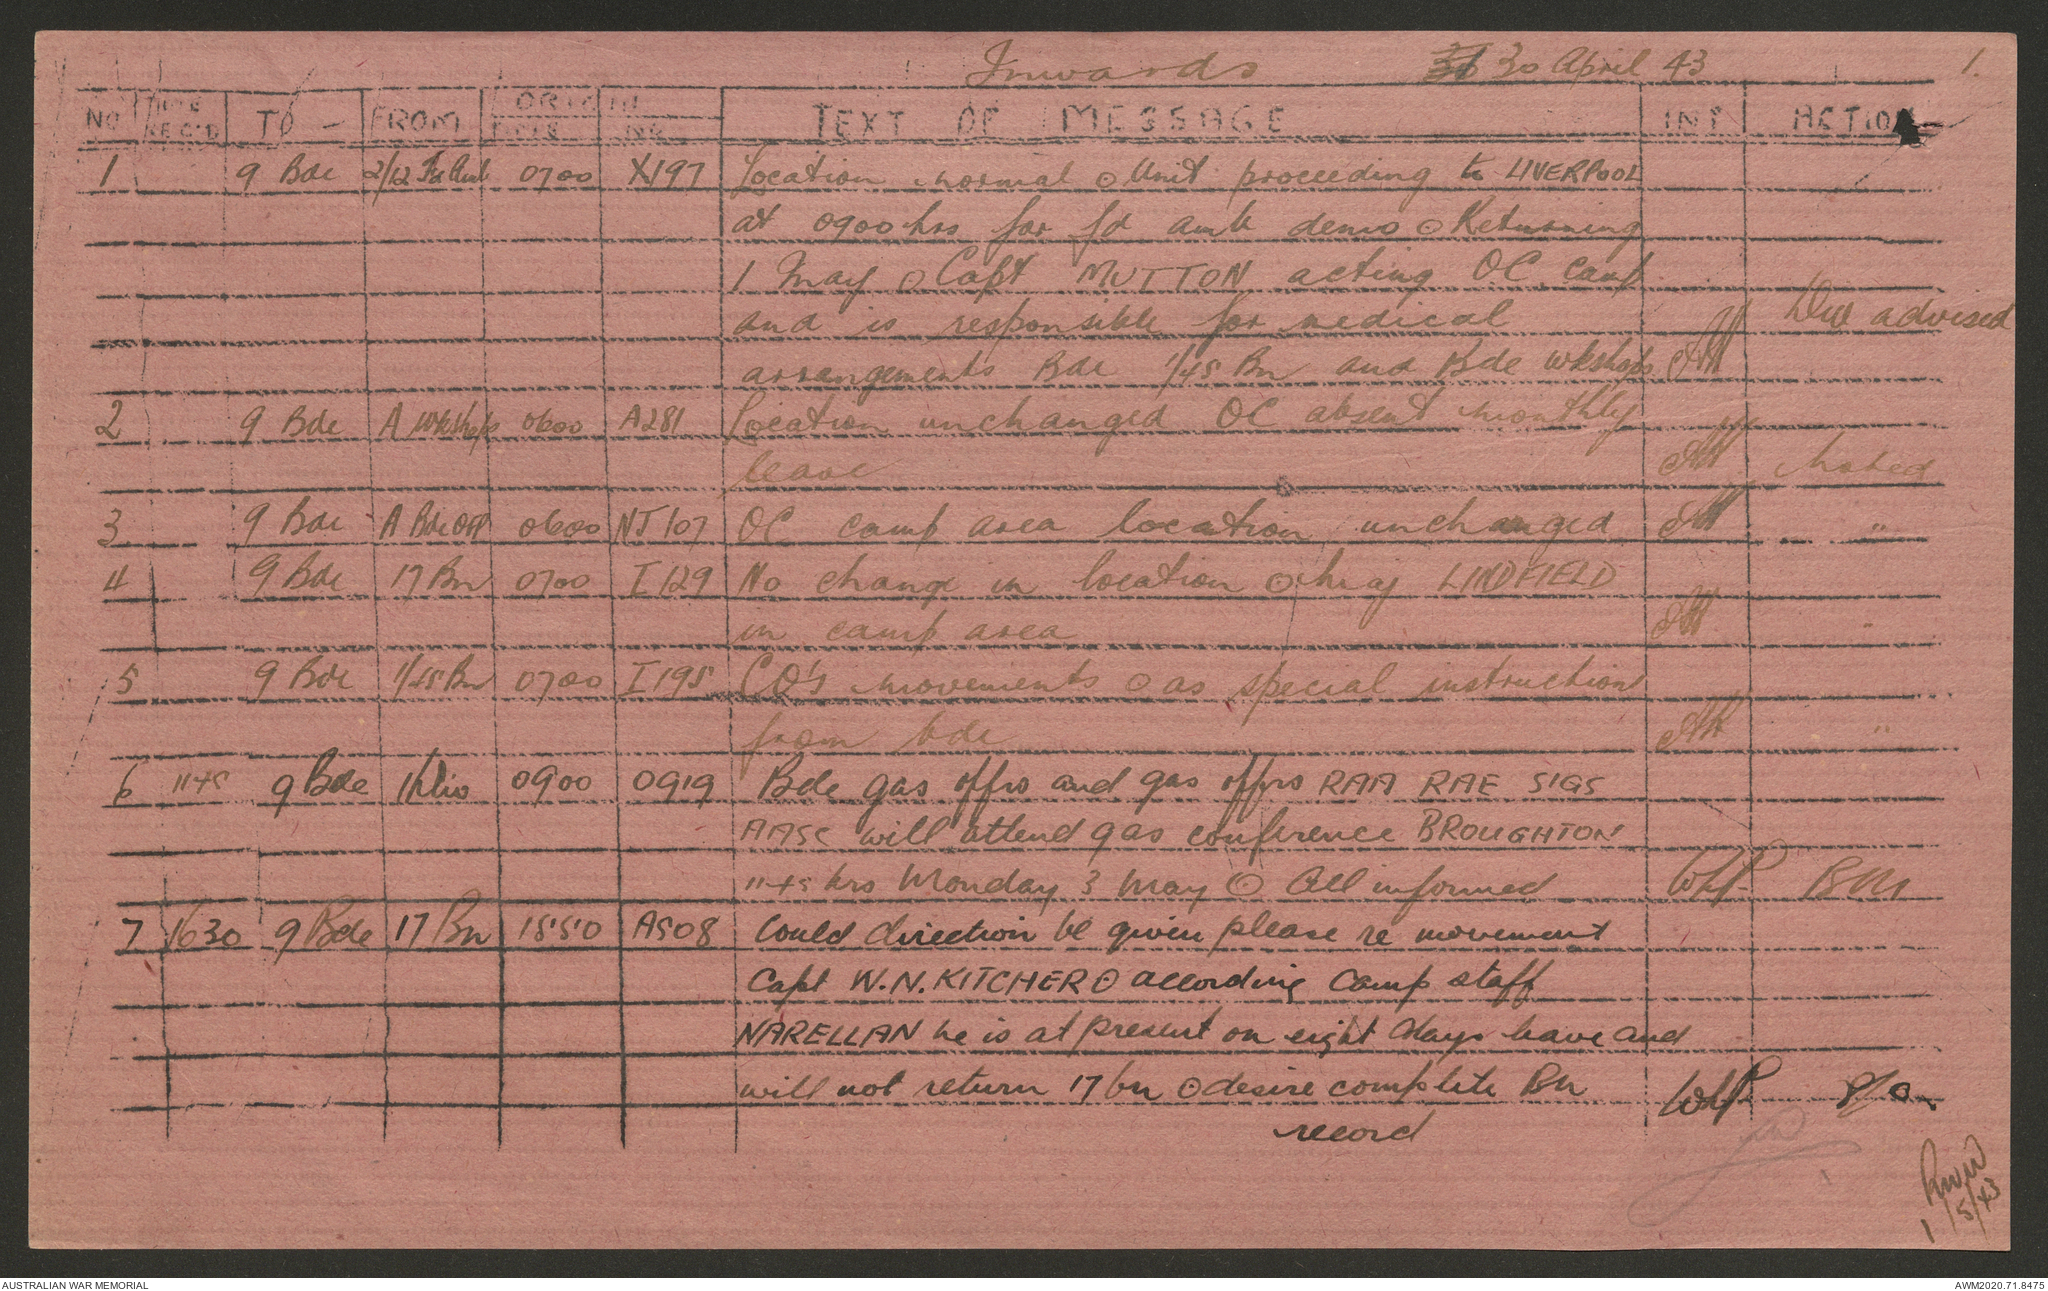 Inwards 30 April 43 1.
NO TIME REC'D TO — FROM ORIGIN TIME NO. TEXT OF MESSAGE INT ACTION
1 9 Bde 2/12 Fd Amb 0700 X197 Location normal ⊙ Unit proceeding to LIVERPOOL
at 0900 hrs for fd amb demo ⊙ Returning
1 May ⊙ Capt MUTTON acting OC camp
and is responsible for medical Div advised
arrangements Bde 1/45 Bn and Bde wkshops
2 9 Bde A Wkshops 0600 A281 Location unchanged OC absent monthly
leave Noted
3 9 Bde A Bde 0600 NJ107 OC camp area location unchanged "
4 9 Bde 17 Bn 0700 I129 No change in location ⊙ LINDFIELD
in camp area "
5 9 Bde 1/45 Bn 0700 I195 CO's movements ⊙ as special instruction
from bde "
6 1145 9 Bde 1 Div 0900 0919 Bde gas offrs and gas offrs RAA RAE SIGS
AASC will attend gas conference BROUGHTON
1145 hrs Monday 3 May ⊙ All informed WHP BM
7 1630 9 Bde 17 Bn 1550 A508 Could direction be given please re movement
Capt W.N. KITCHER ⊙ according camp staff
NARELLAN he is at present on eight days leave and
will not return 17 bn ⊙ desire complete Bn WHP
record
1/5/43
AUSTRALIAN WAR MEMORIAL AWM2020.71.8475